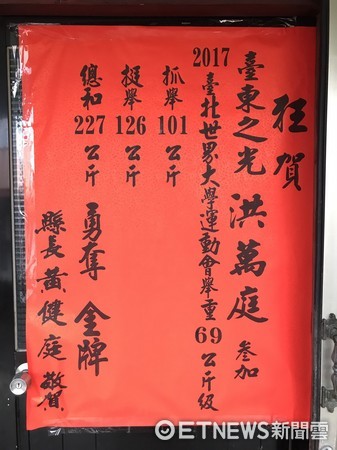 狂賀
臺東之光 洪萬庭 參加
2017臺北世界大學運動會舉重69公斤級
抓舉101公斤
挺舉126公斤
總和227公斤
勇奪金牌
縣長黃健庭敬賀
ETNEWS新聞雲